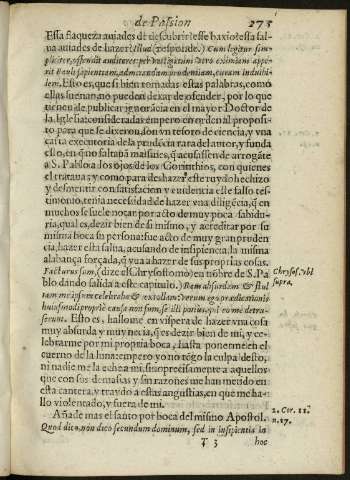 de Passion 273
Essa flaqueza auiades de descubrir! esse baxio! essa fal-
ta auiades de hazer! Illud (responde.) Cum legitur sim-
pliciter, offendit auditores: per vestigatum vero eximiam appe-
rit Pauli sapientiam, admirandam prudentiam, curam indicibi-
lem. Esto es, que si bien tomadas estas palabras, como
ellas suenan, no pueden dexar de ofender, por lo que
tienen de publicar ignorãcia en el mayor Doctor de
la Iglesia: consideradas empero en orden al proposi-
to para que se dixeron, son vn tesoro de ciencia, y vna
carta executoria de la prudẽcia rara del autor, y funda
esto, en q̃ no faltauã malsines, q̃ acusassen de arrogãte
a S. Pablo a los ojos de los Corinthios, con quienes
el trataua: y como para deshazer este ruydo hechizo
y desmentir con satisfacion y euidencia este falso tes-
timonio, tenia necessidad de hazer vna diligẽcia, q̃ en
muchos se suele notar por acto de muy poca sabidu-
ria, qual es, dezir bien de si mismo, y acreditar por su
misma boca su persona: fue acto de muy gran pruden
cia, hazer esta salua, acusando de insipiencia la misma
alabança forçada, q̃ vua a hazer de sus proprias cosas.
Facturus sum, (dize el Chrysostomo) en nõbre de S. Pa
blo dando salida a este capitulo.) Rem absurdam & stul
tam me ipsum celebrabo & extollam: Verum ego prædicationis
huiusmodi propriè causa non sum, sed illi potius, qui eo me detra-
xerunt. Esto es, hallome en vispera de hazer vna cosa
muy absurda y muy necia, q̃ es dezir bien de mi, y ce-
lebrarme por mi propria boca, hasta ponerme en el
cuerno de la luna: empero yo no tẽgo la culpa desto,
ni nadie me la eche a mi, sino precisamente a aquellos
que con sus demasias y sin razones me han metido en
esta cantera, y traydo a estas angustias, en que me ha-
llo violentado, y fuera de mi.
Añade mas el santo por boca del mismo Apostol.
Quod dico, non dico secundum dominum, sed in insipientia in
T 3 hoc
Chrysos. vbi
supra.
2. Cor. 11.
n. 17.